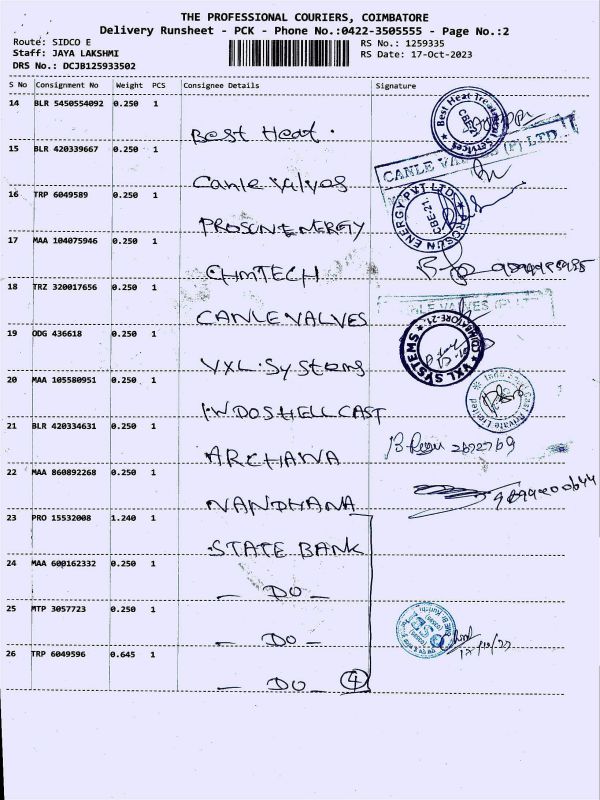 THE PROFESSIONAL COURIERS, COIMBATORE
Delivery Runsheet - PCK - Phone No.:0422-3505555 - Page No.:2
Route: SIDCO E
RS No.: 1259335
Staff: JAYA LAKSHMI
RS Date: 17-Oct-2023
DRS No.: DCJB125933502
S No Consignment No Weight PCS Consignee Details Signature
14 BLR 5450554092 0.250 1
Best Heat.
Best Heat Treatment Services CBE
15 BLR 420339667 0.250 1
Canle Valves
CANLE VALVES (P) LTD
16 TRP 6049589 0.250 1
PROSUN ENERGY
PROSUN ENERGY PVT LTD CBE-21
17 MAA 104075946 0.250 1
CHMTECH
18 TRZ 320017656 0.250 1
CANLE VALVES
CANLE VALVES (P) LTD
19 ODG 436618 0.250 1
VXL.Systems
VXL SYSTEMS COIMBATORE-21
20 MAA 105580951 0.250 1
INDOSHELL CAST
Private Limited
21 BLR 420334631 0.250 1
ARCHANA
22 MAA 860892268 0.250 1
NANDHANA
23 PRO 15532008 1.240 1
STATE BANK
24 MAA 600162332 0.250 1
- DO -
25 MTP 3057723 0.250 1
- DO -
26 TRP 6049596 0.645 1
- DO - 4